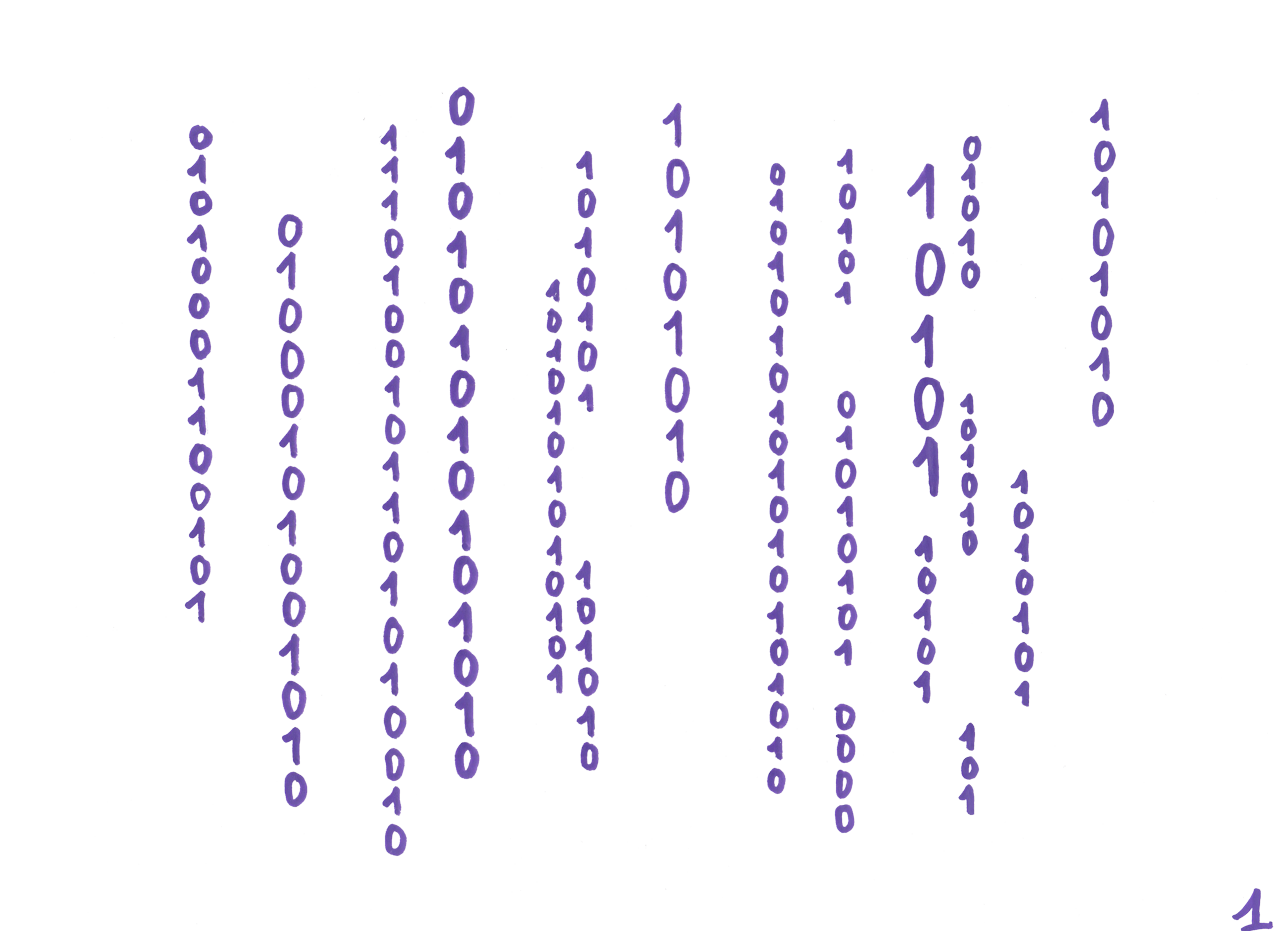 01010001100101
01000101001010
1110100101101010010
010101010101010
1010101010101
1010101
101010
10101010
0101010101010101010
10101
01010101
0000
10101
10101
01010
101010
101
1010101
10101010
1